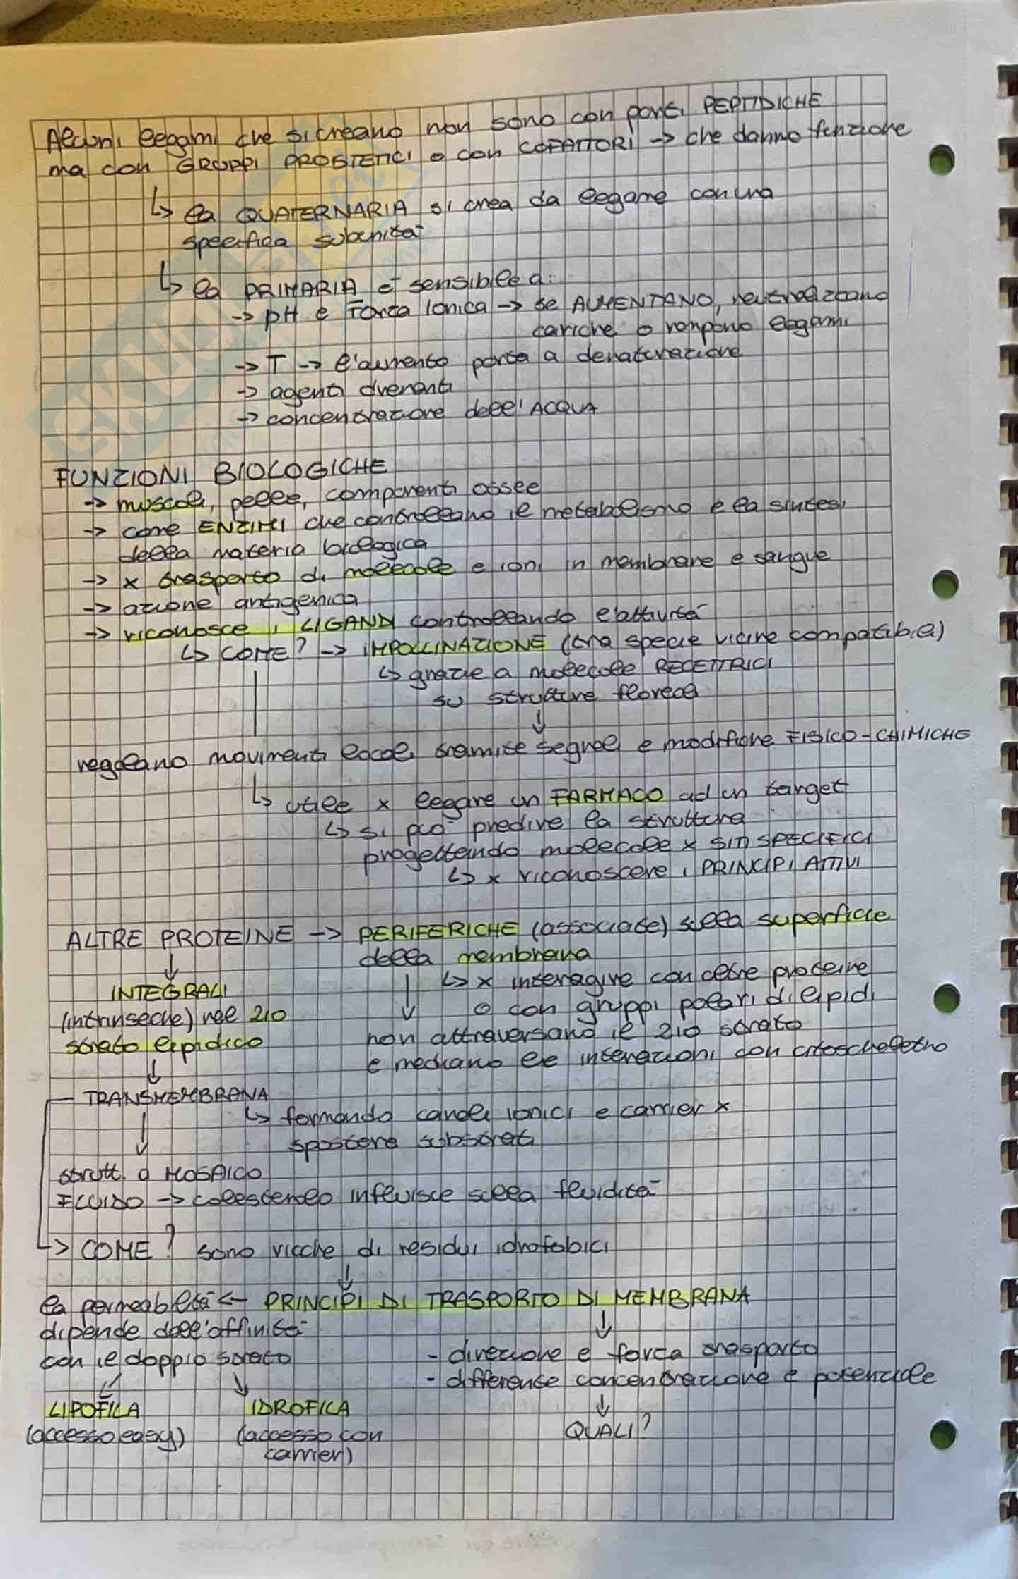 Alcuni legami che si creano non sono con parti PEPTIDICHE
ma con GRUPPI PROSTETICI o con COFATTORI -> che danno funzione
↳ la QUATERNARIA si crea da legame con una
specifica subunità
↳ la PRIMARIA è sensibile a:
-> pH e Forza Ionica -> se AUMENTANO, neutralizzano
cariche o rompono legami
-> T -> l'aumento porta a denaturazione
-> agenti
-> concentrazione dell'ACQUA
FUNZIONI BIOLOGICHE
-> muscoli, pelle, componenti ossee
-> come ENZIMI che controllano il metabolismo e la sintesi
della materia biologica
-> x trasporto di molecole e ioni in membrane e sangue
-> azione antigenica
-> riconosce i LIGANDI controllando l'attività
↳ COME? -> IMPOLLINAZIONE (tra specie vicine compatibili)
↳ grazie a molecole RECETTRICI
su strutture floreali
↓
regolano movimenti locali tramite segnali e modifiche FISICO-CHIMICHE
↳ utile x legare un FARMACO ad un target
↳ si può predire la struttura
progettando molecole x SITI SPECIFICI
↳ x riconoscere i PRINCIPI ATTIVI
ALTRE PROTEINE -> PERIFERICHE (associate) sulla superficie
della membrana
↓
INTEGRALI
↳ x interagire con altre proteine
o con gruppi polari di lipidi
(intrinseche) nel 2io
strato lipidico
↓
non attraversano il 2io strato
e mediano le interazioni con citoscheletro
↓
TRANSMEMBRANA
↳ formando canali ionici e carrier x
spostare substrati
↓
strutt. a MOSAICO
FLUIDO -> colesterolo influisce sulla fluidità
-> COME? sono ricche di residui idrofobici
↓
la permeabilità <- PRINCIPI DI TRASPORTO DI MEMBRANA
dipende dall'affinità
con il doppio strato
↓
- direzione e forza trasporto
- differenze concentrazione e potenziale
↓
LIPOFILA
(accesso easy)
IDROFILA
(accesso con
carrier)
QUALI?